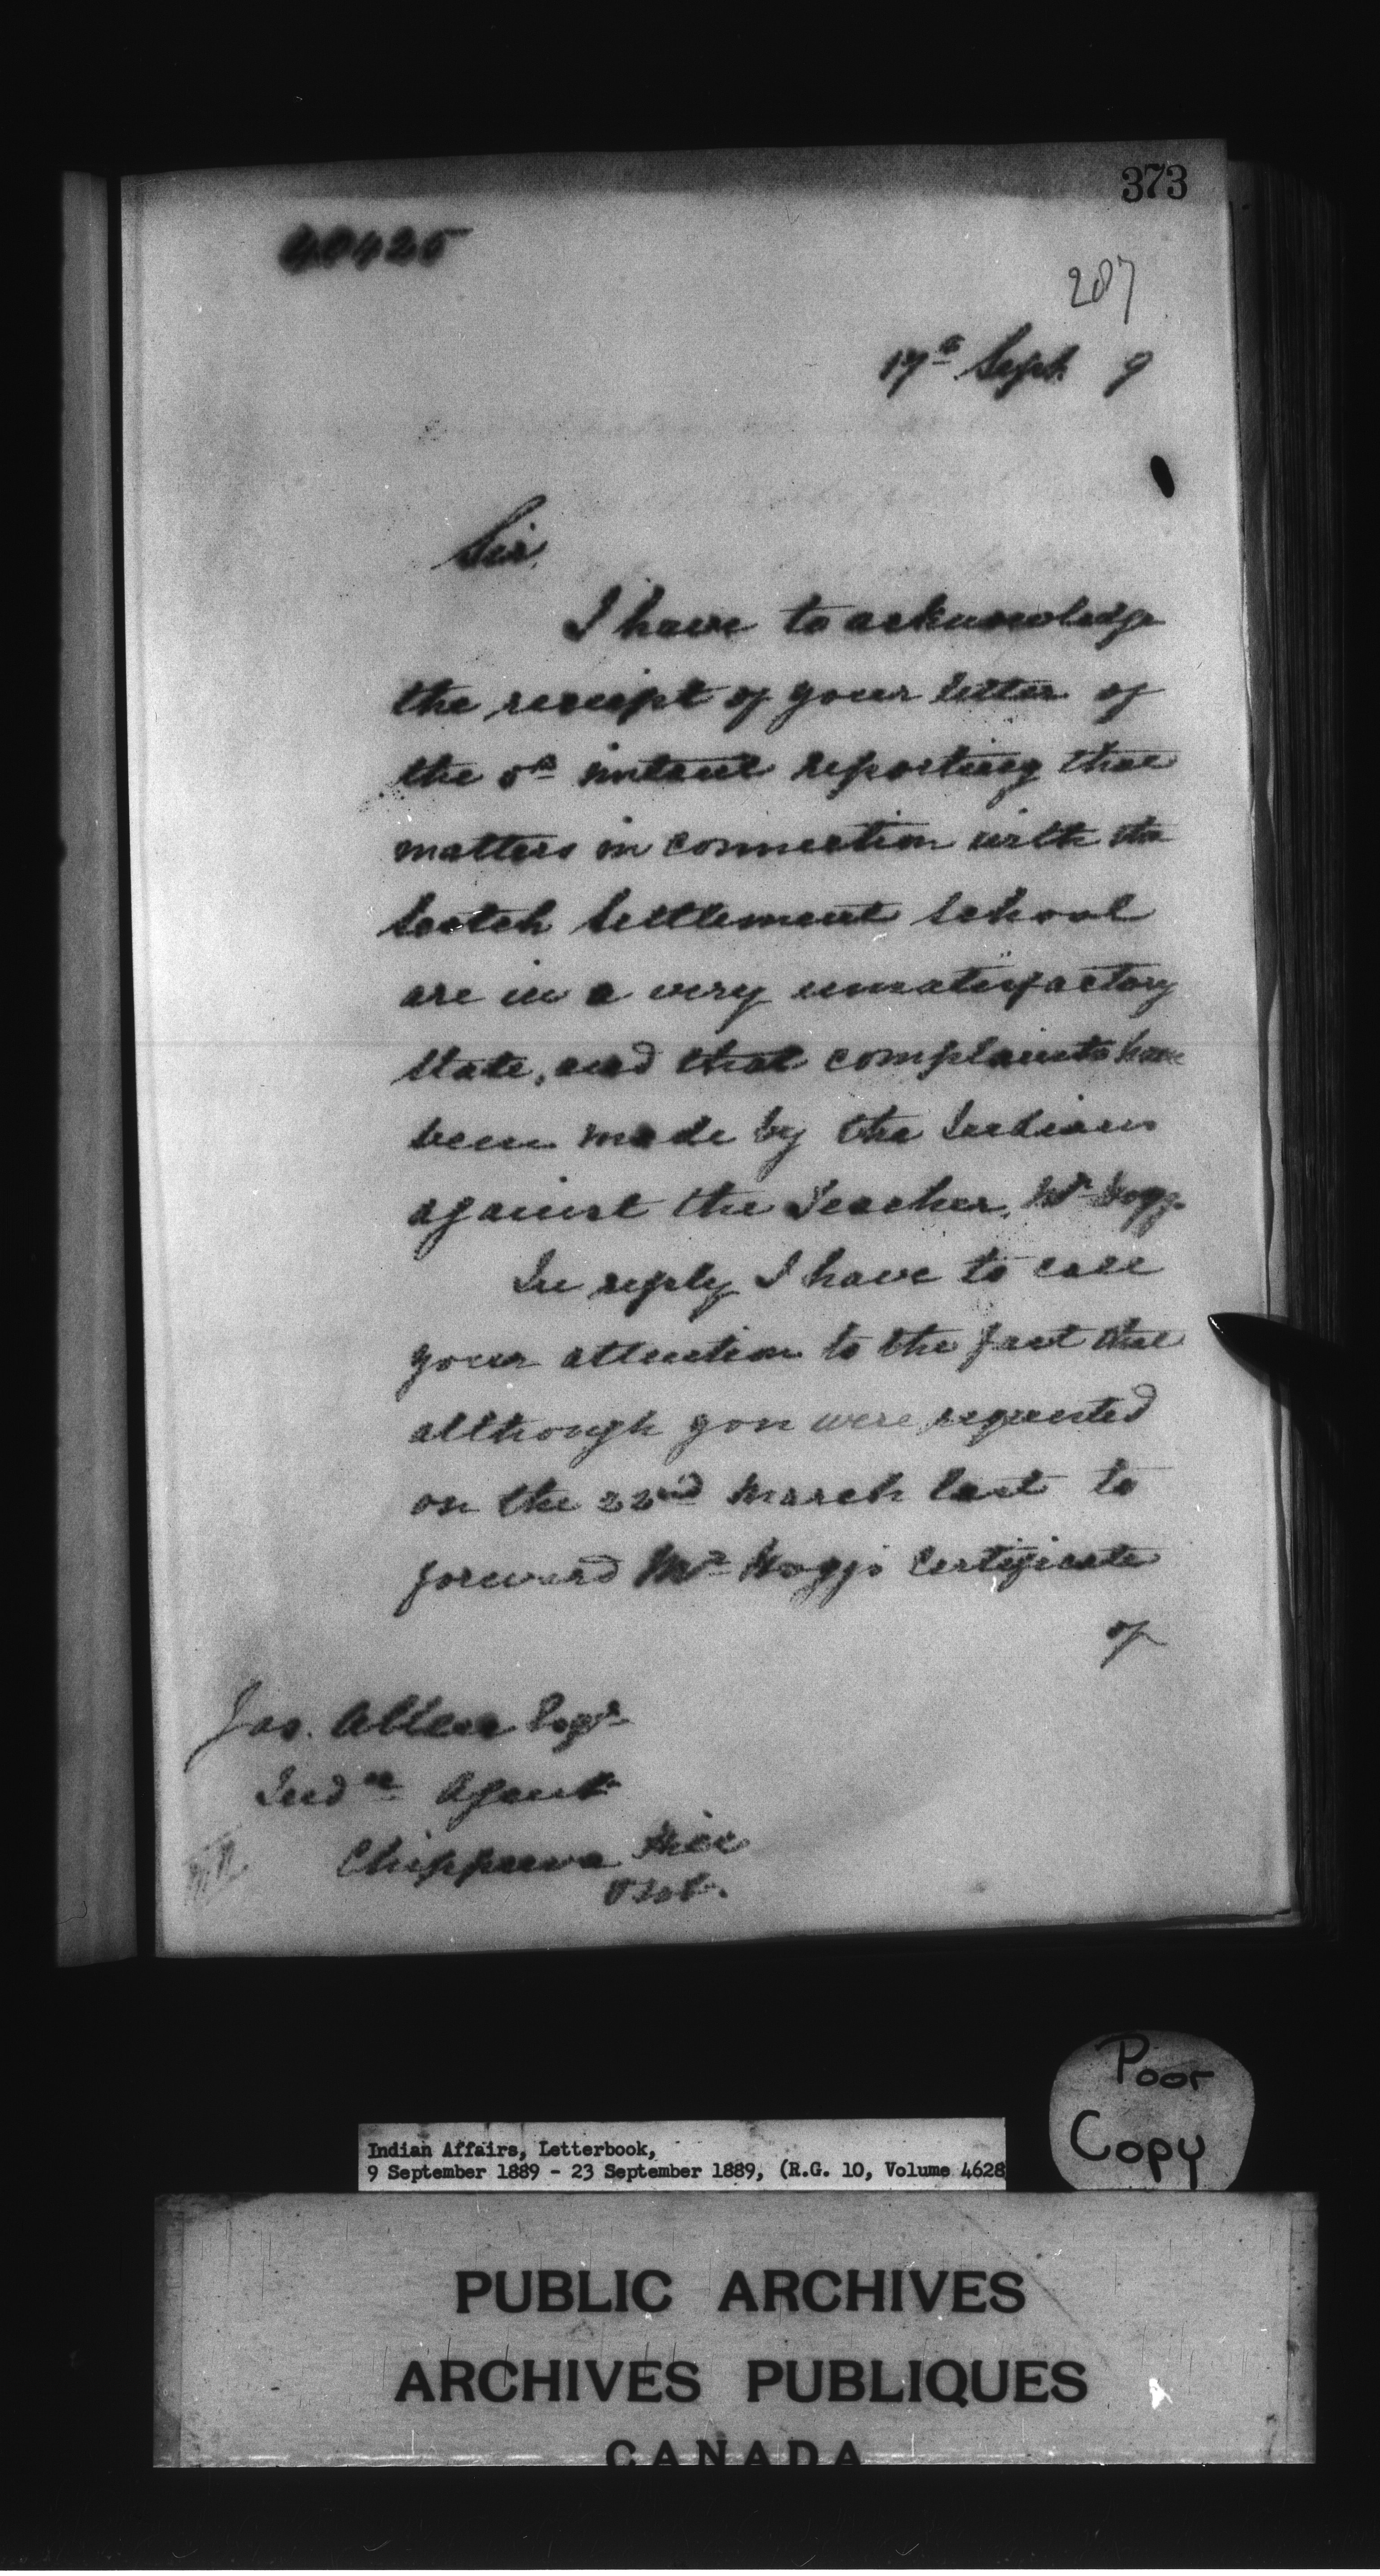 373
40425
207
17th Sept. 9
Sir,
I have to acknowledge
the receipt of your letter of
the 5th instant reporting that
matters in connection with the
Scotch Settlement School
are in a very unsatisfactory
state, and that complaints have
been made by the Indians
against the Teacher, Mr Hogg.
In reply I have to call
your attention to the fact that
although you were requested
on the 22nd March last to
forward Mr Hogg's Certificate
of
Jas. Allen Esqr
Indn Agent
Chippewa Hill
Ont.
Poor
Copy
Indian Affairs, Letterbook,
9 September 1889 - 23 September 1889, (R.G. 10, Volume 4628
PUBLIC ARCHIVES
ARCHIVES PUBLIQUES
CANADA